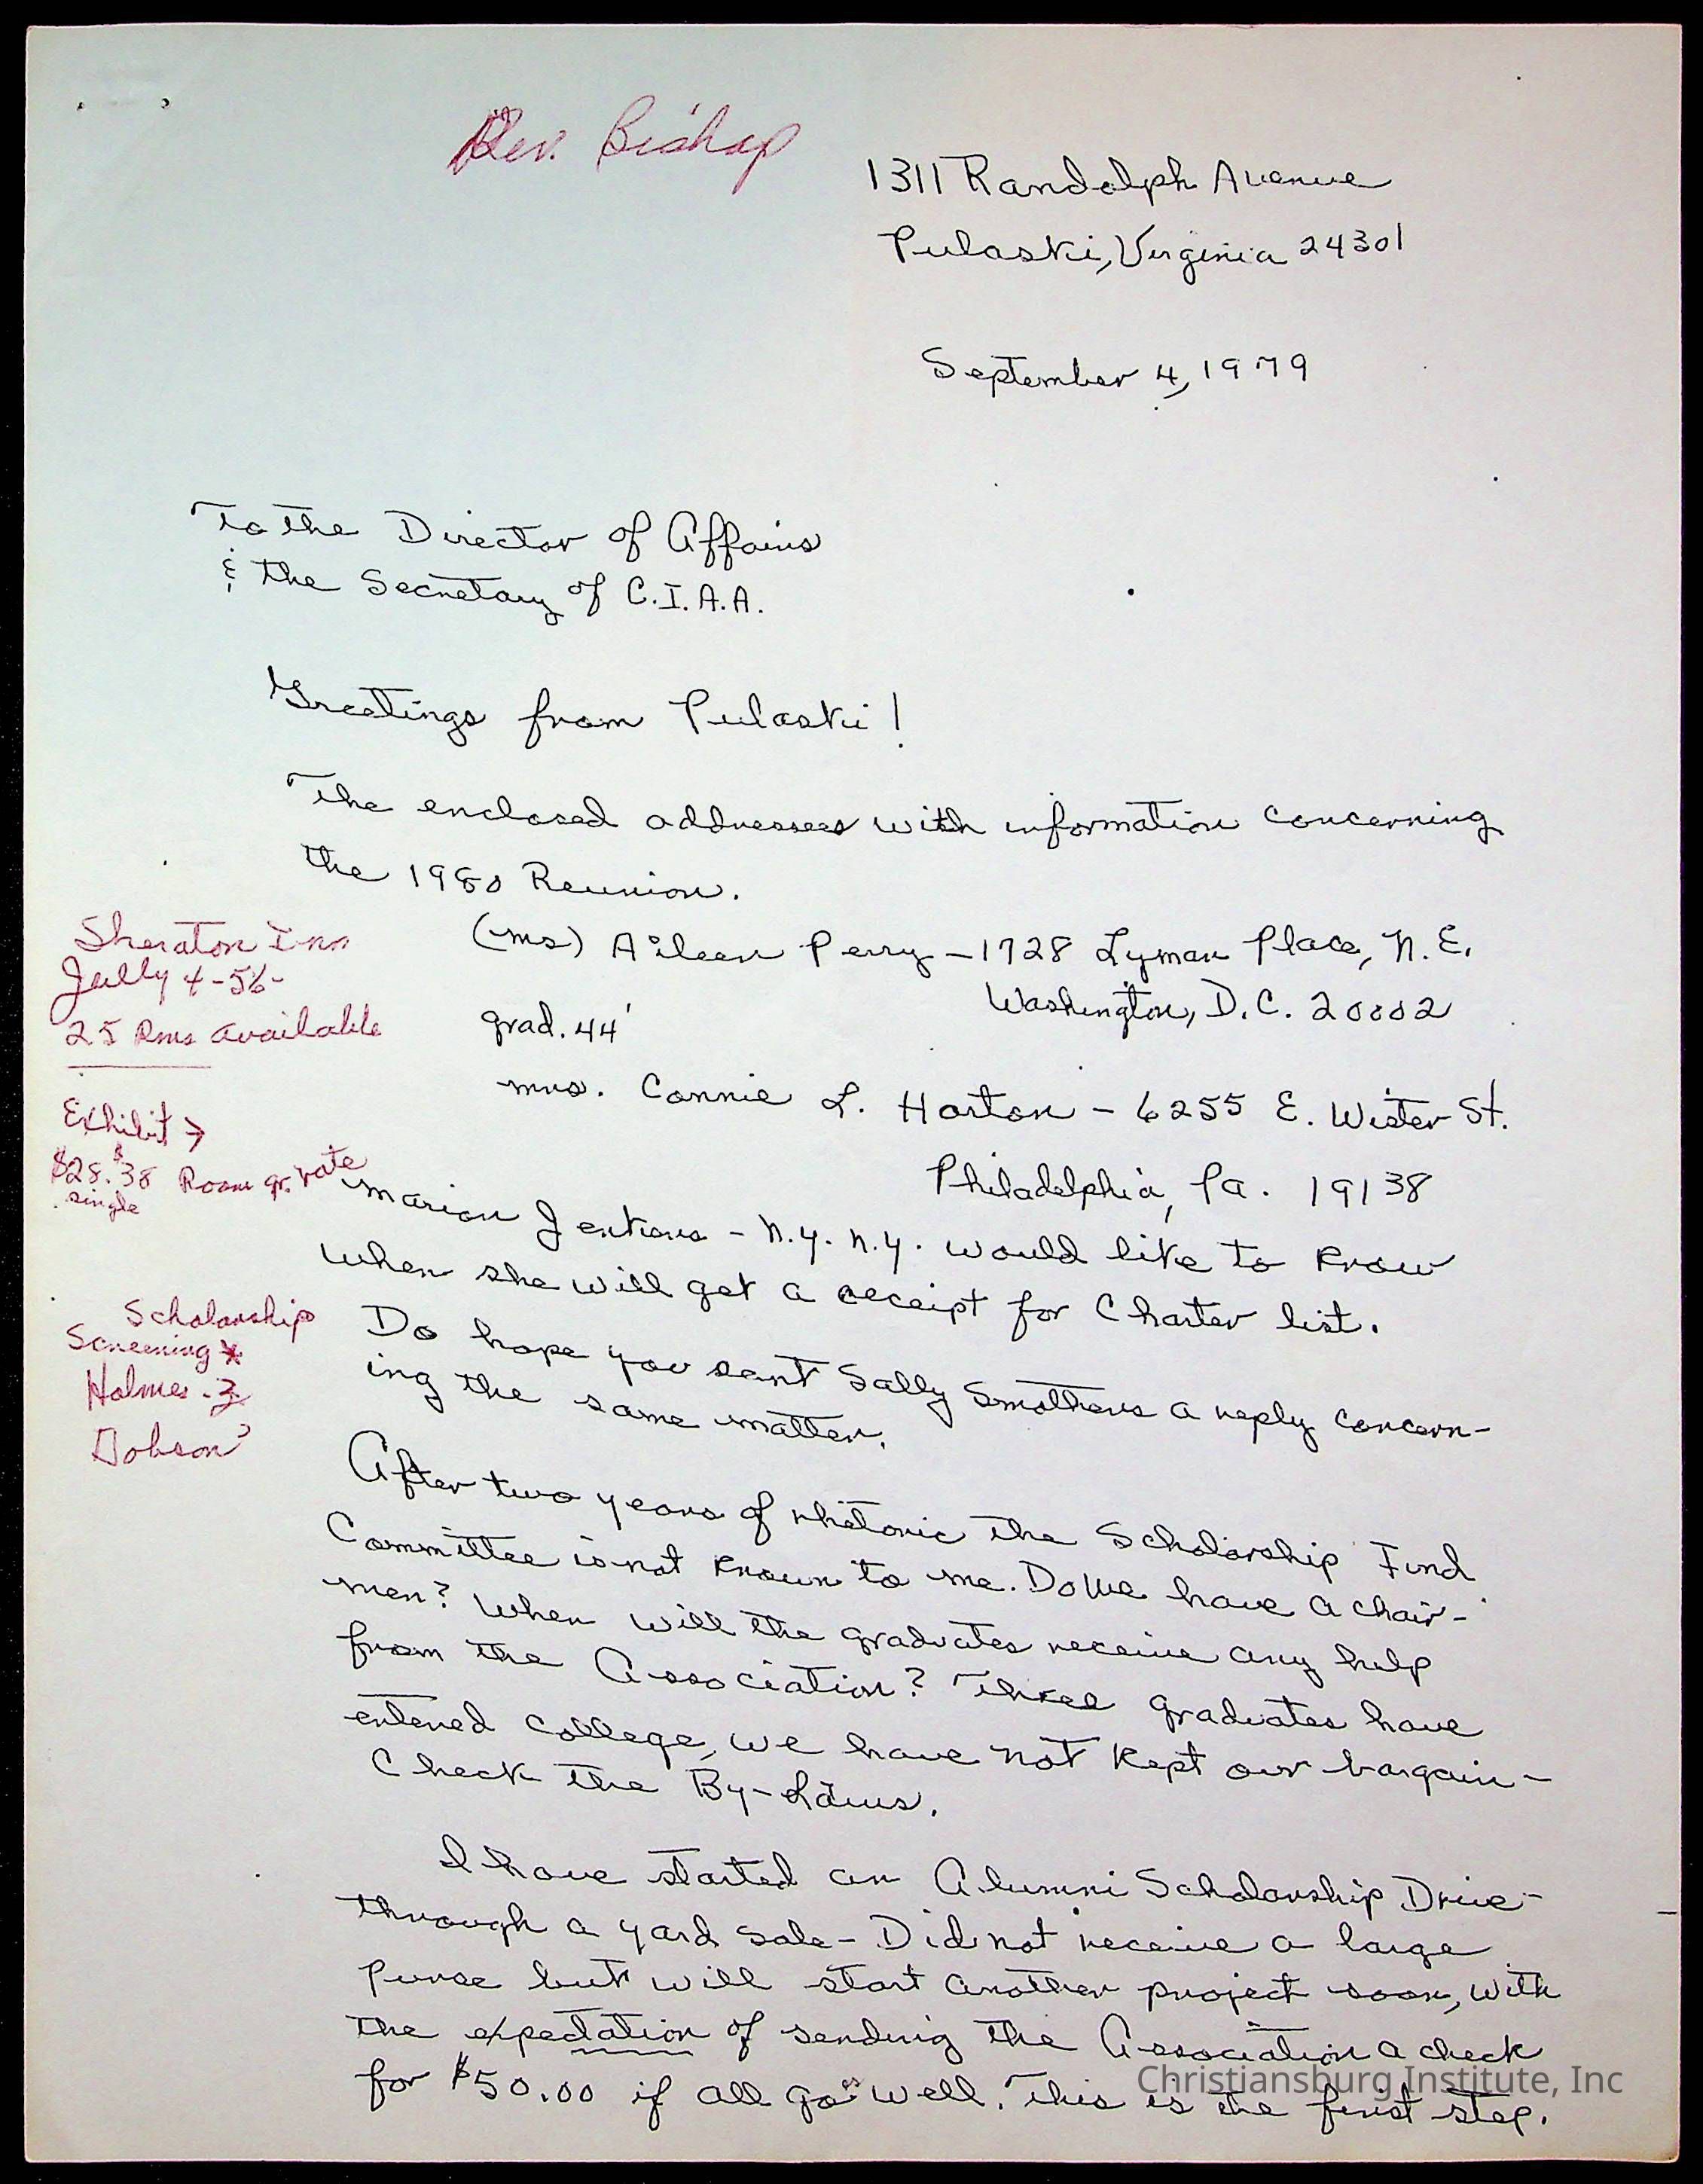 Rev. Bishop
1311 Randolph Avenue
Pulaski, Virginia 24301
September 4, 1979
To the Director of Affairs
& the Secretary of C.I.A.A.
Greetings from Pulaski!
The enclosed addresses with information concerning
the 1980 Reunion.
(Ms) Aileen Perry - 1728 Lyman Place, N.E.
Washington, D.C. 20002
grad. 44'
Mrs. Connie L. Horton - 6255 E. Wister St.
Philadelphia, Pa. 19138
Sheraton Inn
Jully 4-56-
25 Rms available
Exhibit →
$28. $38 Room gr. rate
single
Marion Jenkins - N.Y. N.Y. would like to know
when she will get a receipt for Charter list.
Do hope you sent Sally Smothers a reply concern-
ing the same matter.
Scholarship
Screening *
Holmes -
Dobson
After two years of rhetoric the Scholarship Fund
Committee is not known to me. Do We have a chair-
men? When will the graduates receive any help
from the Association? Three graduates have
entered college, we have not kept our bargain-
Check the By-Laws.
I have started an Alumni Scholarship Drive-
through a yard sale- Did not receive a large
purse but will start another project soon, with
the expectation of sending the Association a check
for $50.00 if all goes well. This is the first step.
Christiansburg Institute, Inc